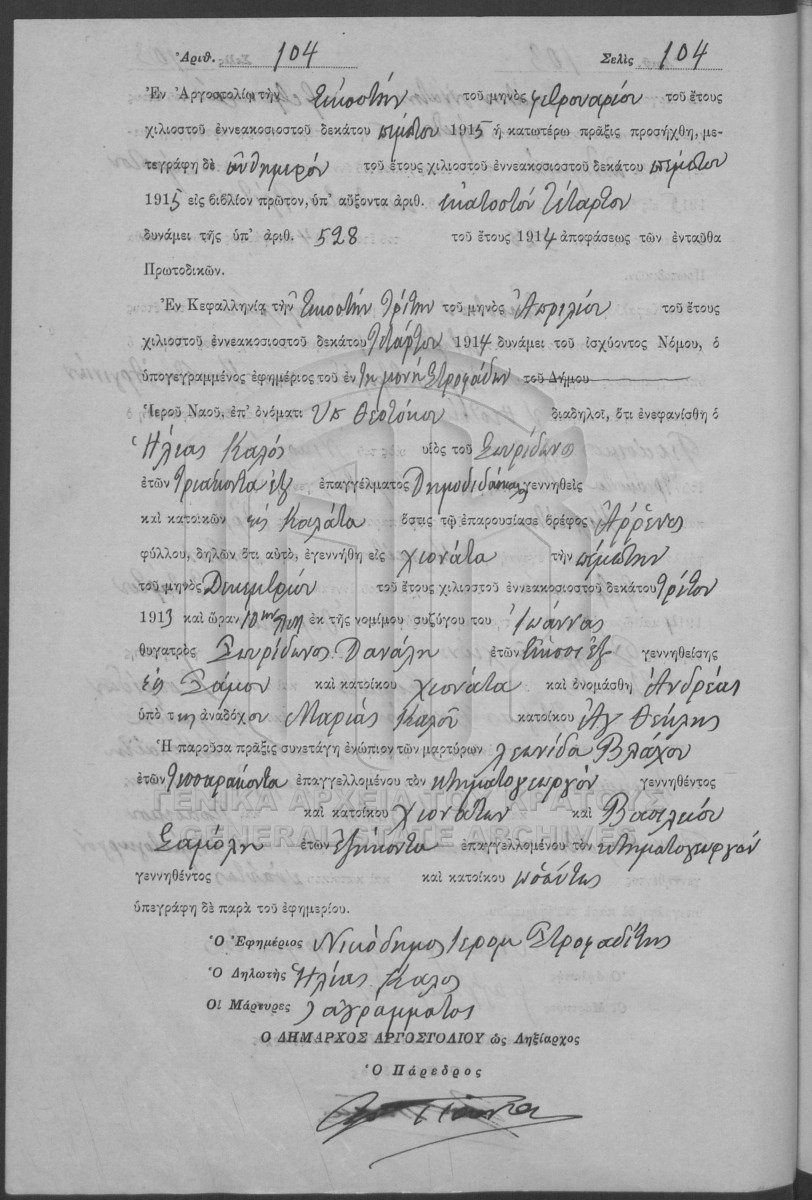 Ἀριθ. 104 Σελὶς 104
Ἐν Ἀργοστολίῳ τὴν Εἰκοστήν τοῦ μηνὸς Φεβρουαρίου τοῦ ἔτους
χιλιοστοῦ ἐννεακοσιοστοῦ δεκάτου πέμπτου 1915 ἡ κατωτέρω πρᾶξις προσήχθη, με-
τεγράφη δὲ αὐθημερόν τοῦ ἔτους χιλιοστοῦ ἐννεακοσιοστοῦ δεκάτου πέμπτου
1915 εἰς βιβλίον πρῶτον, ὑπ' αὔξοντα ἀριθ. ἑκατοστόν τέταρτον
δυνάμει τῆς ὑπ' ἀριθ. 528 τοῦ ἔτους 1914 ἀποφάσεως τῶν ἐνταῦθα
Πρωτοδικῶν.
Ἐν Κεφαλληνίᾳ τὴν Εἰκοστήν τρίτην τοῦ μηνὸς Ἀπριλίου τοῦ ἔτους
χιλιοστοῦ ἐννεακοσιοστοῦ δεκάτου τετάρτου 1914 δυνάμει τοῦ ἰσχύοντος Νόμου, ὁ
ὑπογεγραμμένος ἐφημέριος τοῦ ἐν τῃ μονῇ Στροφάδων τοῦ Δήμου
Ἱεροῦ Ναοῦ, ἐπ' ὀνόματι Υπ Θεοτόκου διαδηλοῖ, ὅτι ἐνεφανίσθη ὁ
Ἠλίας Καλός υἱὸς τοῦ Σπυρίδωνος
ἐτῶν τριάκοντα ἕξ ἐπαγγέλματος Δημοδιδάσκαλος γεννηθεὶς
καὶ κατοικῶν εἰς Καλάτα ὅστις τῷ ἐπαρουσίασε βρέφος Ἄῤῥενος
φύλλου, δηλῶν ὅτι αὐτὸ, ἐγεννήθη εἰς Χιονάτα τὴν πέμπτην
τοῦ μηνὸς Δεκεμβρίου τοῦ ἔτους χιλιοστοῦ ἐννεακοσιοστοῦ δεκάτου τρίτου
1913 καὶ ὥραν 10ην ἐκ τῆς νομίμου συζύγου του Ἰωάννας
θυγατρὸς Σπυρίδωνος Δανάλη ἐτῶν εἴκοσι ἕξ γεννηθείσης
εἰς Σάμον καὶ κατοίκου Χιονάτα καὶ ὀνομάσθη Ἀνδρέας
ὑπὸ της ἀναδόχου Μαρίας Καλοῦ κατοίκου Ἁγ Θέκλης
Ἡ παροῦσα πρᾶξις συνετάγη ἐνώπιον τῶν μαρτύρων Λεωνίδα Βλάχου
ἐτῶν τεσσαράκοντα ἐπαγγελλομένου τὸν κτηματογεωργόν γεννηθέντος
καὶ κατοίκου Χιονάτων καὶ Βασιλείου
Σαμόλη ἐτῶν ἑξήκοντα ἐπαγγελλομένου τὸν κτηματογεωργόν
γεννηθέντος καὶ κατοίκου ὡσαύτως
ὑπεγράφη δὲ παρὰ τοῦ ἐφημερίου.
Ὁ Ἐφημέριος Νικόδημος Ιερομ Στροφαδίτης
Ὁ Δηλωτὴς Ἠλίας Καλος
Οἱ Μάρτυρες αγράμματοι
Ο ΔΗΜΑΡΧΟΣ ΑΡΓΟΣΤΟΛΙΟΥ ὡς Ληξίαρχος
Ὁ Πάρεδρος
ΓΕΝΙΚΑ ΑΡΧΕΙΑ ΤΟΥ ΚΡΑΤΟΥΣ
GENERAL STATE ARCHIVES